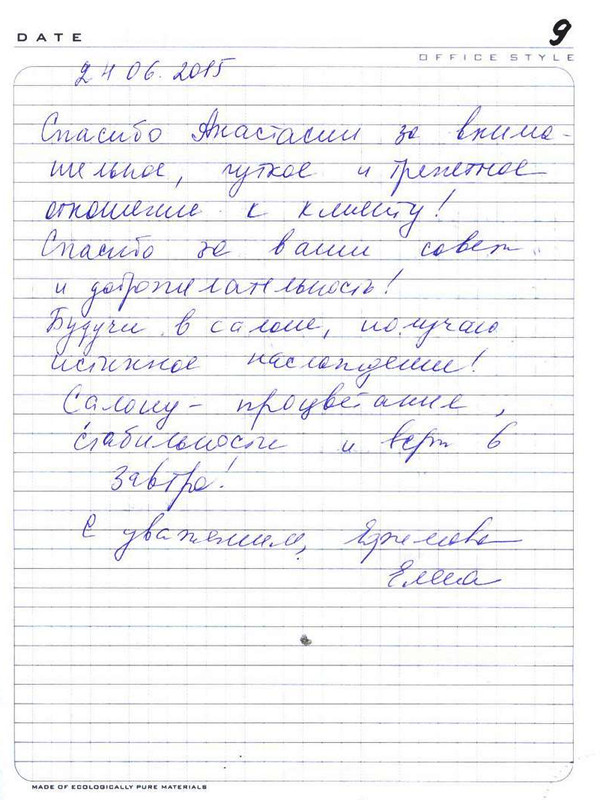 DATE
9
OFFICE STYLE
24 06. 2015
Спасибо Анастасии за внима-
тельное, чуткое и трепетное
отношение к клиенту!
Спасибо за ваши совет
и доброжелательность!
Будучи в салоне, получаю
истинное наслаждение!
Салону - процветание,
стабильности и веры в
завтра!
С уважением,
Елена
MADE OF ECOLOGICALLY PURE MATERIALS